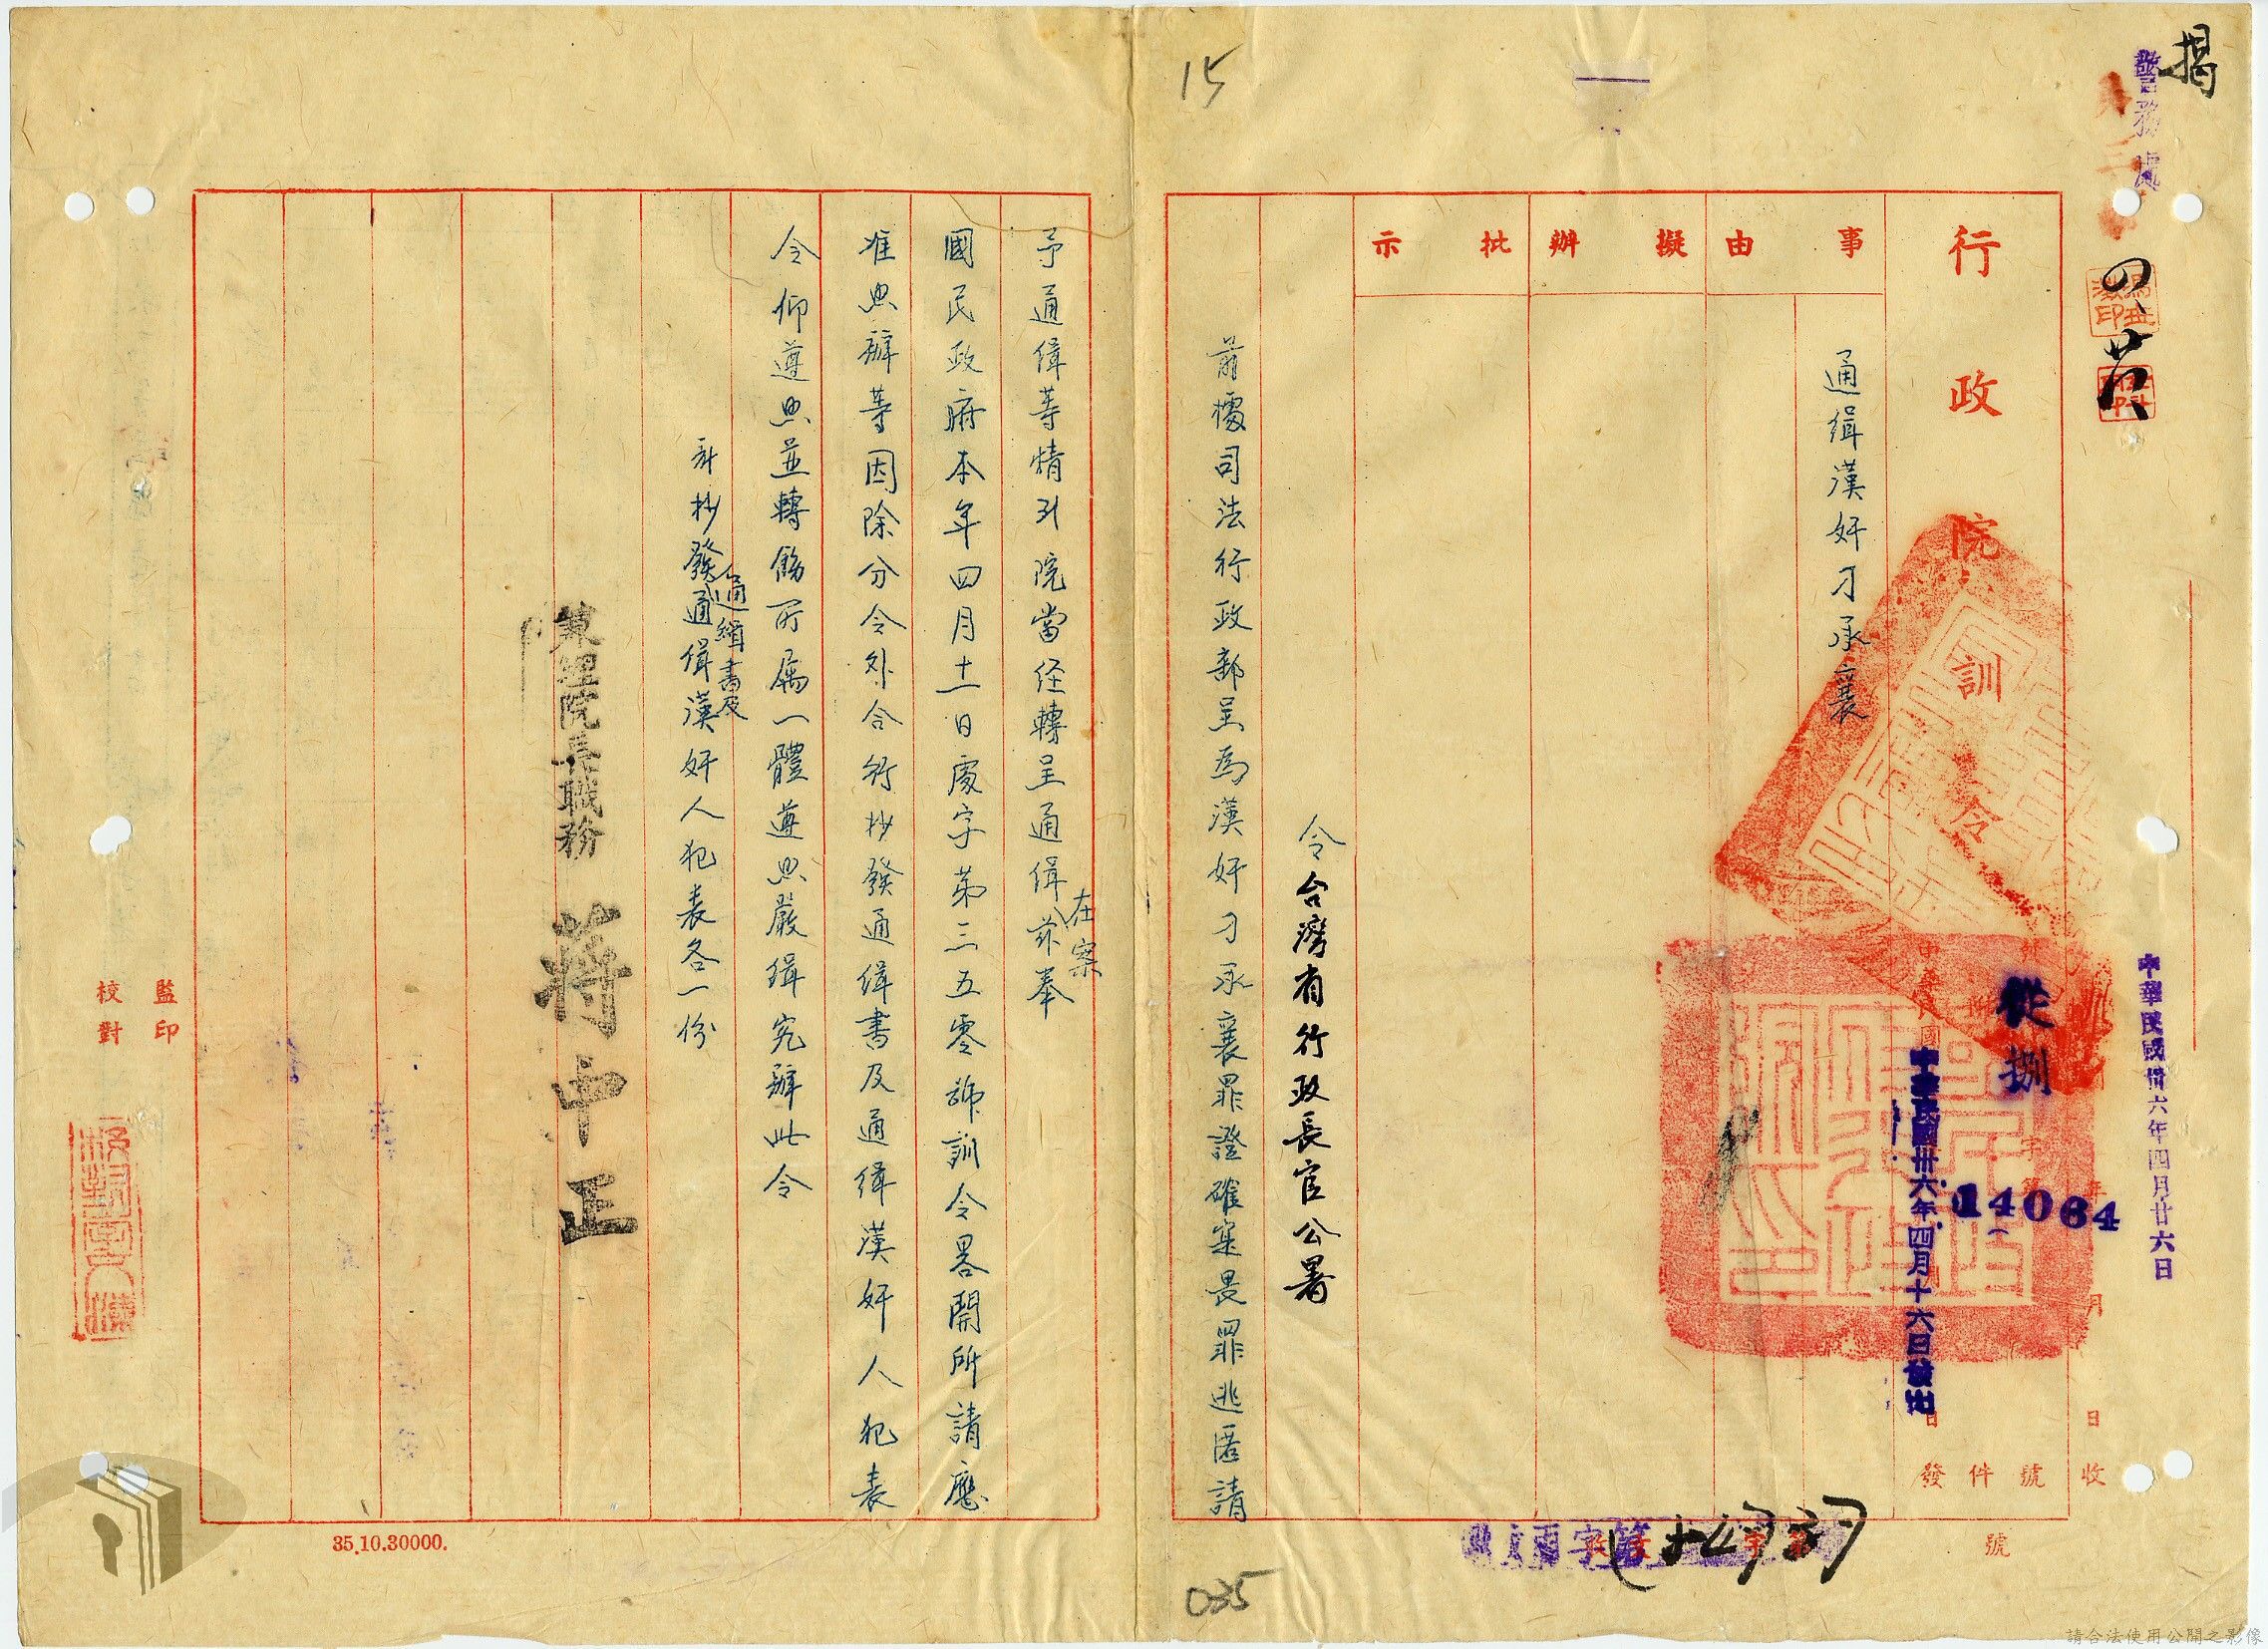 揭
警務處
行政院訓令
從捌
14064
中華民國卅六年四月廿六日
中華民國卅六年四月十六日發出
事由
擬辦
批示
通緝漢奸刁承襄
令台灣省行政長官公署
前據司法行政部呈為漢奸刁承襄罪證確鑿畏罪逃匿請
予通緝等情到院當經轉呈通緝在案茲奉
國民政府本年四月十一日處字第三五零號訓令畧開所請應
准照辦等因除分令外合行抄發通緝書及通緝漢奸人犯表
令仰遵照並轉飭所屬一體遵照嚴緝究辦此令
計抄發通緝書及通緝漢奸人犯表各一份
兼理院長職務 蔣中正
監印
校對
收
號
件
發
日
月
年
號
15
035
35.10.30000.
請合法使用公開之影像